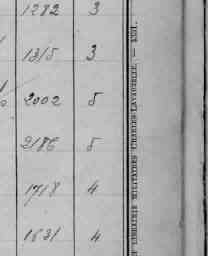 1282 3
1315 3
2002 5
2186 5
1718 4
1631 4
LIBRAIRIE MILITAIRES CHARLES-LAVAUZELLE. —